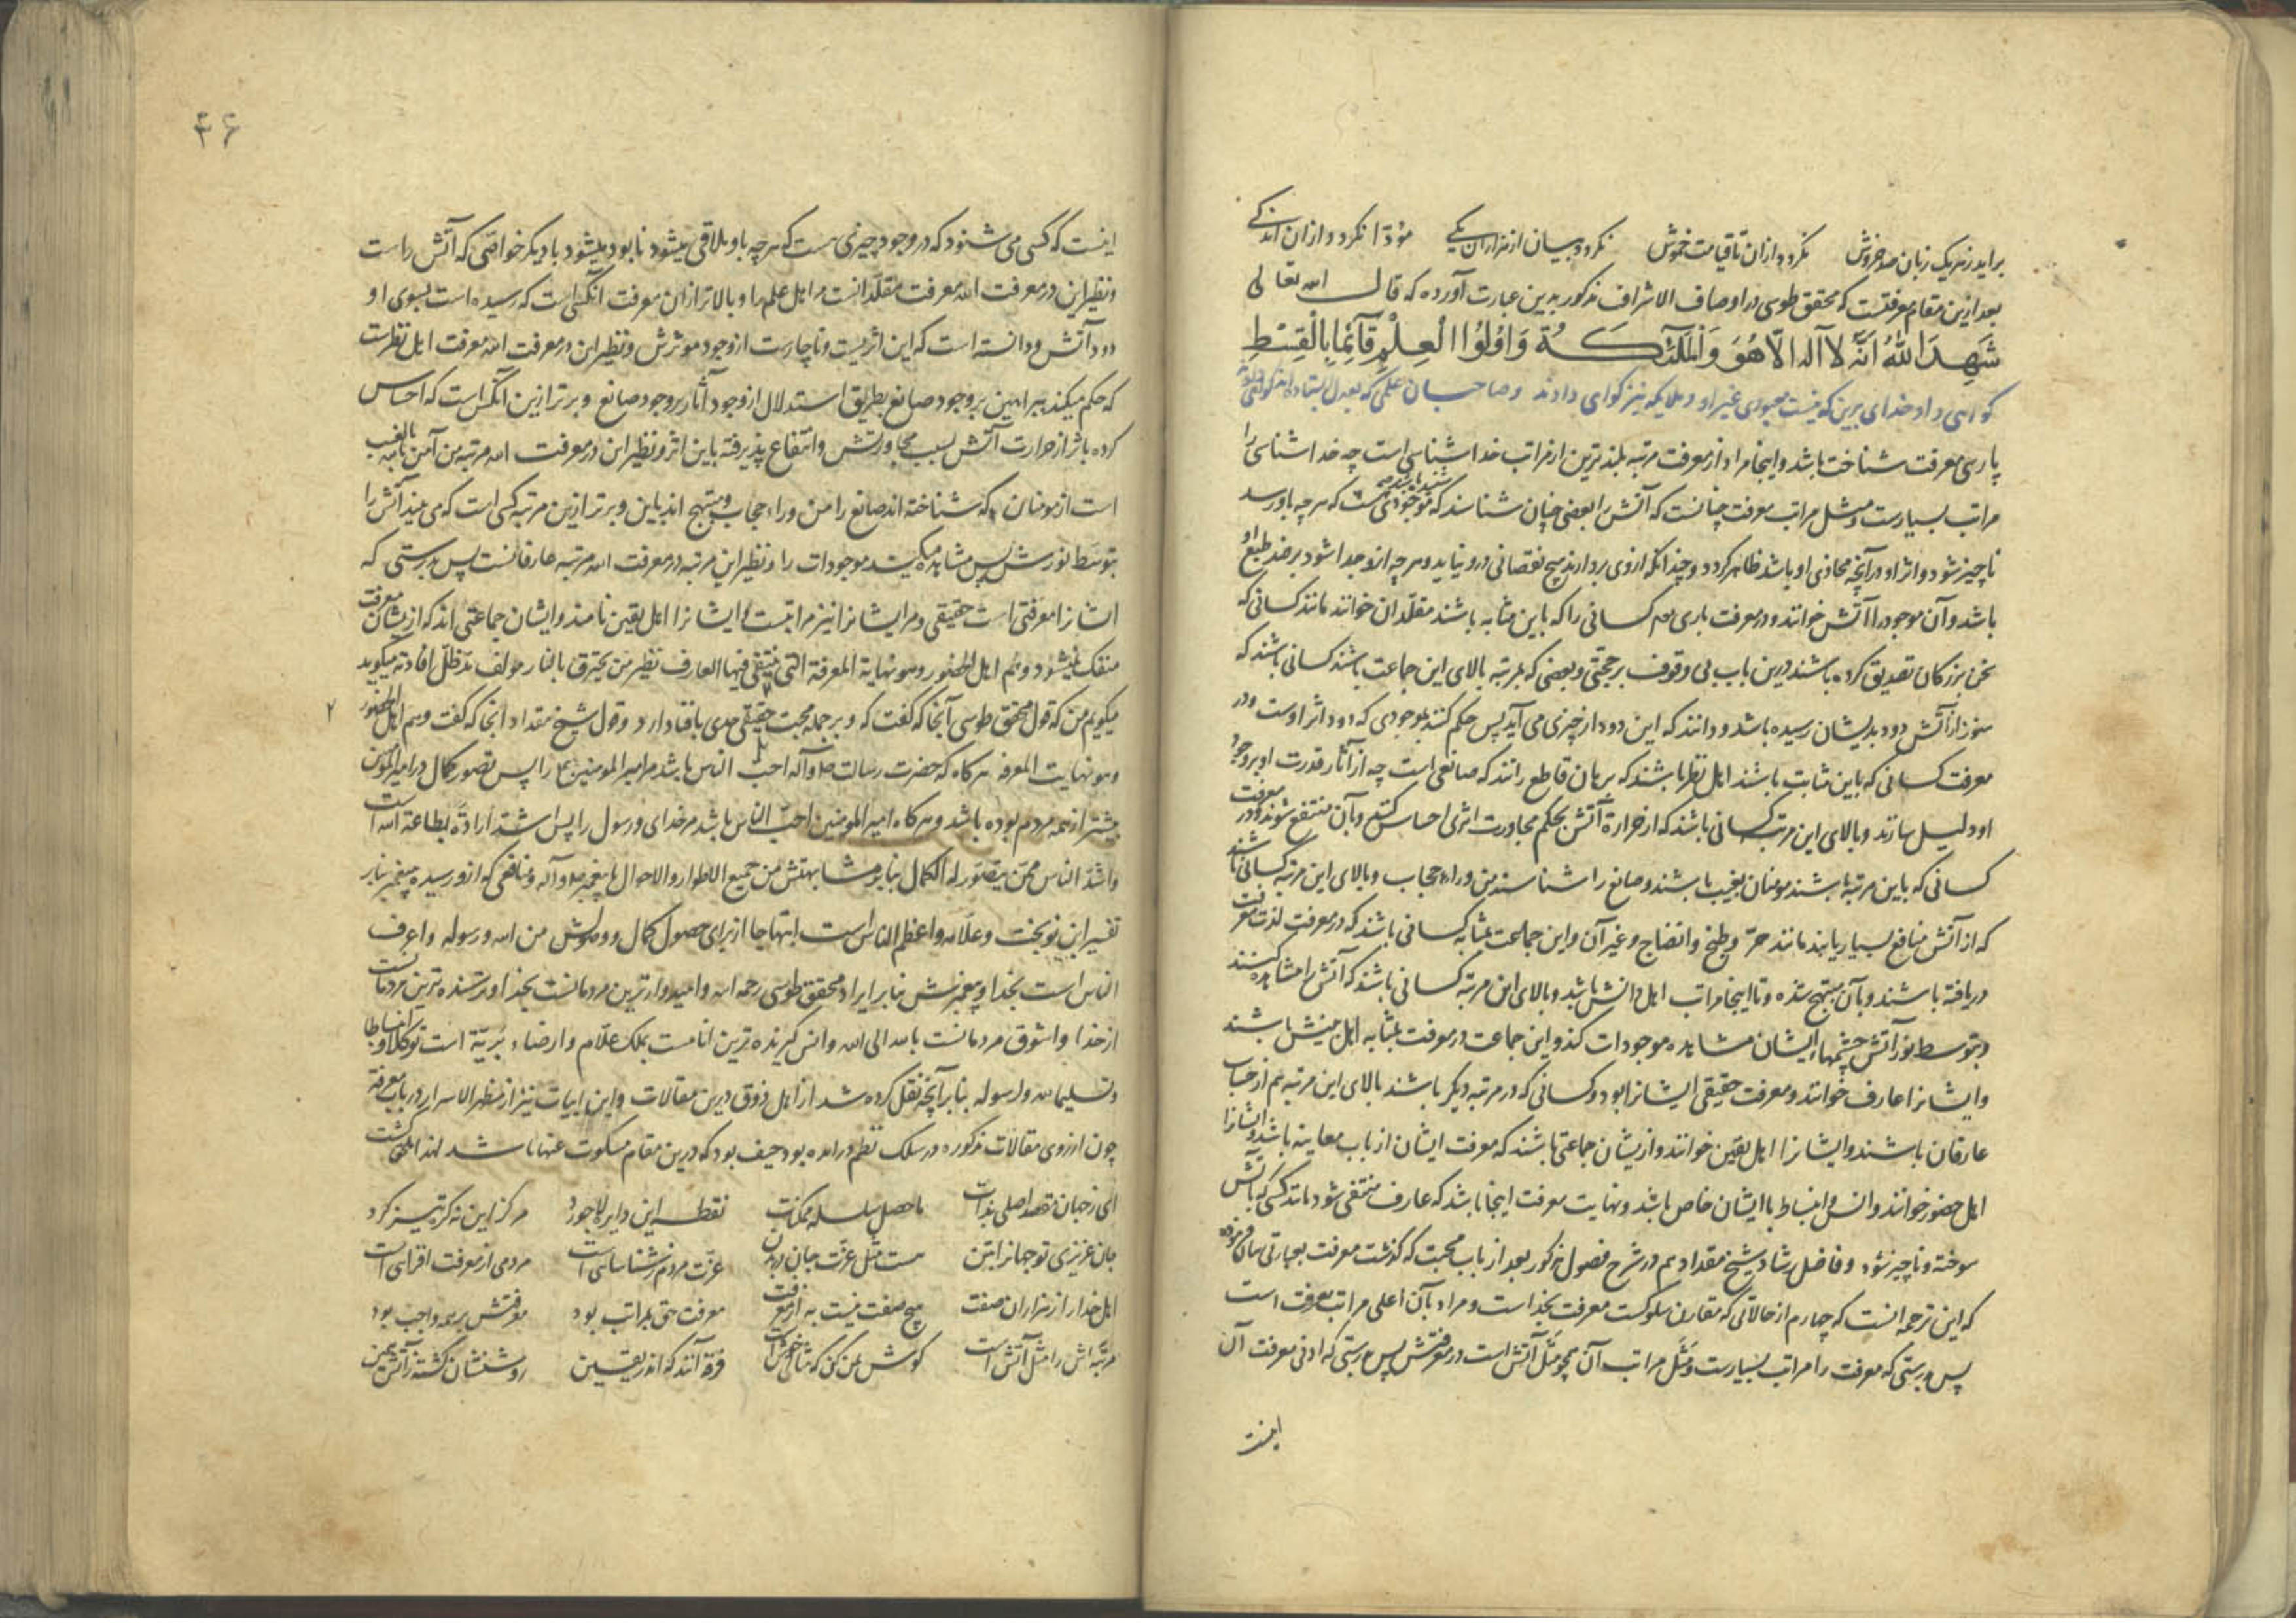 برآید ز هر یک زبان صد خروش نگردد ازان تا قیامت خموش نگردد بیان از هزاران یکی مؤدّا نگردد ازان اندکی
بعد ازین مقام معرفتست که محقق طوسی در اوصاف الاشراف مذکور بدین عبارت آورده که قال الله تعالی
شَهِدَ اللّٰهُ اَنَّهُ لَا اِلٰهَ اِلَّا هُوَ وَالْمَلٰٓئِكَةُ وَاُولُوا الْعِلْمِ قَآئِمًا بِالْقِسْطِ
گواهی داد خدای برین که نیست معبودی غیر او و ملایکه نیز گواهی دادند و صاحبان علمی که بعدل ایستاده اند
پارسی معرفت شناخت باشد و اینجا مراد از معرفت مرتبه بلندترین از مراتب خداشناسی است چه خداشناسی را
مراتب بسیارست و مثل مراتب معرفت چنانست که آتش را بعضی چنان شناسند که شنیده باشند که موجودی هست که هر چه باو رسد
ناچیز شود و اثر او در آنچه محاذی او باشد ظاهر گردد و چندانکه ازوی بردارند هیچ نقصانی درو نیاید و هر چه ازو جدا شود بر ضد طبع او
باشد و آن موجود را آتش خوانند و در معرفت باری تع کسانی را که باین مثابه باشند مقلّدان خوانند مانند کسانی که
سخن بزرگان تصدیق کرده باشند درین باب بی وقوف بر حجتی و بعضی که بمرتبه بالای این جماعت باشند کسانی باشند که
هنوز از آتش دود بدیشان رسیده باشد و دانند که این دود از چیزی می آید پس حکم کنند بموجودی که دود اثر اوست و در
معرفت کسانی که باین مثابت باشند اهل نظر باشند که ببرهان قاطع دانند که صانعی است چه از آثار قدرت او بر وجود
او دلیل سازند و بالای این مرتبه کسانی باشند که از حرارة آتش بحکم مجاورت اثری احساس کنند و بآن منتفع شوند و در معرفت
کسانی که باین مرتبه باشند مومنان بغیب باشند و صانع را شناسند من وراء حجاب و بالای این مرتبه کسانی باشند
که از آتش منافع بسیار یابند مانند حرّ و طبخ و انضاج و غیر آن و این جماعت بمثابه کسانی باشند که در معرفت لذت معرفت
دریافته باشند و بآن مبتهج شده و تا اینجا مراتب اهل دانش باشد و بالای این مرتبه کسانی باشند که آتش را مشاهده کنند
و بتوسط نور آتش چشمهاء ایشان مشاهده موجودات کند و این جماعت در معرفت بمثابه اهل بینش باشند
و ایشانرا عارف خوانند و معرفت حقیقی ایشانرا بود و کسانی که در مرتبه دیگر باشند بالای این مرتبه هم از حساب
عارفان باشند و ایشانرا اهل یقین خوانند و ازیشان جماعتی باشند که معرفت ایشان از باب معاینه باشد و ایشانرا
اهل حضور خوانند و انس و انبساط با ایشان خاص باشد و نهایت معرفت اینجا باشد که عارف منتفی شود مانند کسی که بآتش
سوخته و ناچیز شود و فاضل رشاد شیخ مقداد هم در شرح فصول مذکور بعد از باب محبت که گذشت معرفت بعبارتی بیان فرموده
که این ترجمه آنست که چهارم از حالاتی که مقارن سلوکست معرفت بخداست و مراد بآن اعلی مراتب معرفت است
پس بدرستی که معرفت را مراتب بسیارست و مَثَل مراتب آن همچو مَثَل آتش است در معرفتش پس بدرستی که ادنی معرفت آن
اینست
۴۶
اینست که کسی می شنود که در وجود چیزی هست که هر چه باو ملاقی میشود نابود میشود با دیگر خواصّی که آتش راست
و نظیر این در معرفت الله معرفت مقلّدانست مر اهل علم را و بالاتر ازان معرفت آنکس است که رسیده است بسوی او
دود آتش و دانسته است که این اثریست و ناچارست از وجود موثرش و نظیر این در معرفت الله معرفت اهل نظرست
که حکم میکنند ببراهین بر وجود صانع بطریق استدلال از وجود آثار بر وجود صانع و برتر ازین آنکس است که احساس
کرده باشد از حرارت آتش بسبب مجاورتش و انتفاع پذیرفته باین اثر و نظیر این در معرفت الله مرتبه من آمن بالغیب
است از مومنان که شناخته اند صانع را من وراء حجاب و مبتهج اند باین و برتر ازین مرتبه کسی است که می بیند آتش را
بتوسّط نورش پس مشاهده میکند موجودات را و نظیر این مرتبه در معرفت الله مرتبه عارفانست پس بدرستی که
ایشانرا معرفتی است حقیقی و مر ایشانرا نیز مراتبست و ایشانرا اهل یقین نامند و ایشان جماعتی اند که ازیشان معرفت
منفک نمیشود و هم اهل الحضور و هو نهایة المعرفة التی ینتفی فیها العارف نظیر من یحترق بالنار مولف مدّ ظلّ افادته میگوید
میگویم من که قول محقق طوسی آنجا که گفت که و بر جمله محبت حقیقی حدی بافنا دارد و قول شیخ مقداد اینجا که گفت وهم اهل الحضور
و هو نهایت المعرفه هرگاه که حضرت رسالت ص و آله احب الناس باشد مر امیر المومنین ع را پس تصور کمال در امیر المومنین
بیشتر از همه مردم بوده باشد و هرگاه امیر المومنین احبّ الناس باشد مر خدای و رسول را پس اشد ارادةً بطاعة الله است
و اشدّ الناس محنّ یتصوّر له الکمال بنا بر مشابهتش من جمیع الاطوار و الاحوال با پیغمبر ص و آله و منافعی که ازو رسیده پیغمبر بنابر
تفسیر ابن نوبخت و علّامه و اعظم الناس است ابتهاجا از برای حصول کمال و وصولش من الله و رسوله و اعرف
الناس است بخدا و پیغمبرش بنا بر ایراد محقق طوسی رحمه الله و امیدوارترین مردمانست بخدا و ترسنده ترین مردمانست
از خدا و اشوق مردمانست بالله الی الله و انس گیرنده ترین انامست بملک علّام و ارضاء بریّه است توکلا و انبساطا
و تسلیما لله و لرسوله بنا بر آنچه نقل کرده شد از اهل ذوق درین مقالات و این ابیات نیز از مظهر الاسرار در باب معرفة
چون ازروی مقالات مذکوره در سلک نظم درآمده بود حیف بود که درین مقام مسکوت عنها باشد لهذا ملحق گشت
ای ز جهان مقصد اصلی بذات ماحصل سلسله ممکنات نقطه این دایره لاجورد مرکز این نه کره تیزگرد
جان عزیزی تو جهانرا بتن هست مثل عزّت جان در بدن عزّت مردم ز شناسائی است مردمی از معرفت افزائی است
اهل خدا را ز هزاران صفت هیچ صفت نیست به از معرفت معرفت حق بمراتب بود معرفتش بر همه واجب بود
مرتبه اش را مثل آتش است گوش بمن کن که مثالی خوش است فرقه آنند که اندر یقین روشنشان گشته ز آتش همین